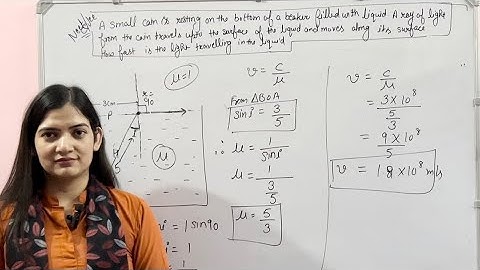 A small coin is resting on the bottom of a beaker filled with liquid. A ray of light
from the coin travels upto the surface of the liquid and moves along its surface
How fast is the light travelling in the liquid
μ=1
r=
90
3cm
P
μ
v = c/μ
From ΔBOA
sin i = 3/5
μ = 1/sin i
μ = 1/(3/5)
μ = 5/3
= 1 sin 90
= 1
v = c/μ
= 3×10⁸/(5/3)
= 9×10⁸/5
v = 1.8×10⁸ m/s